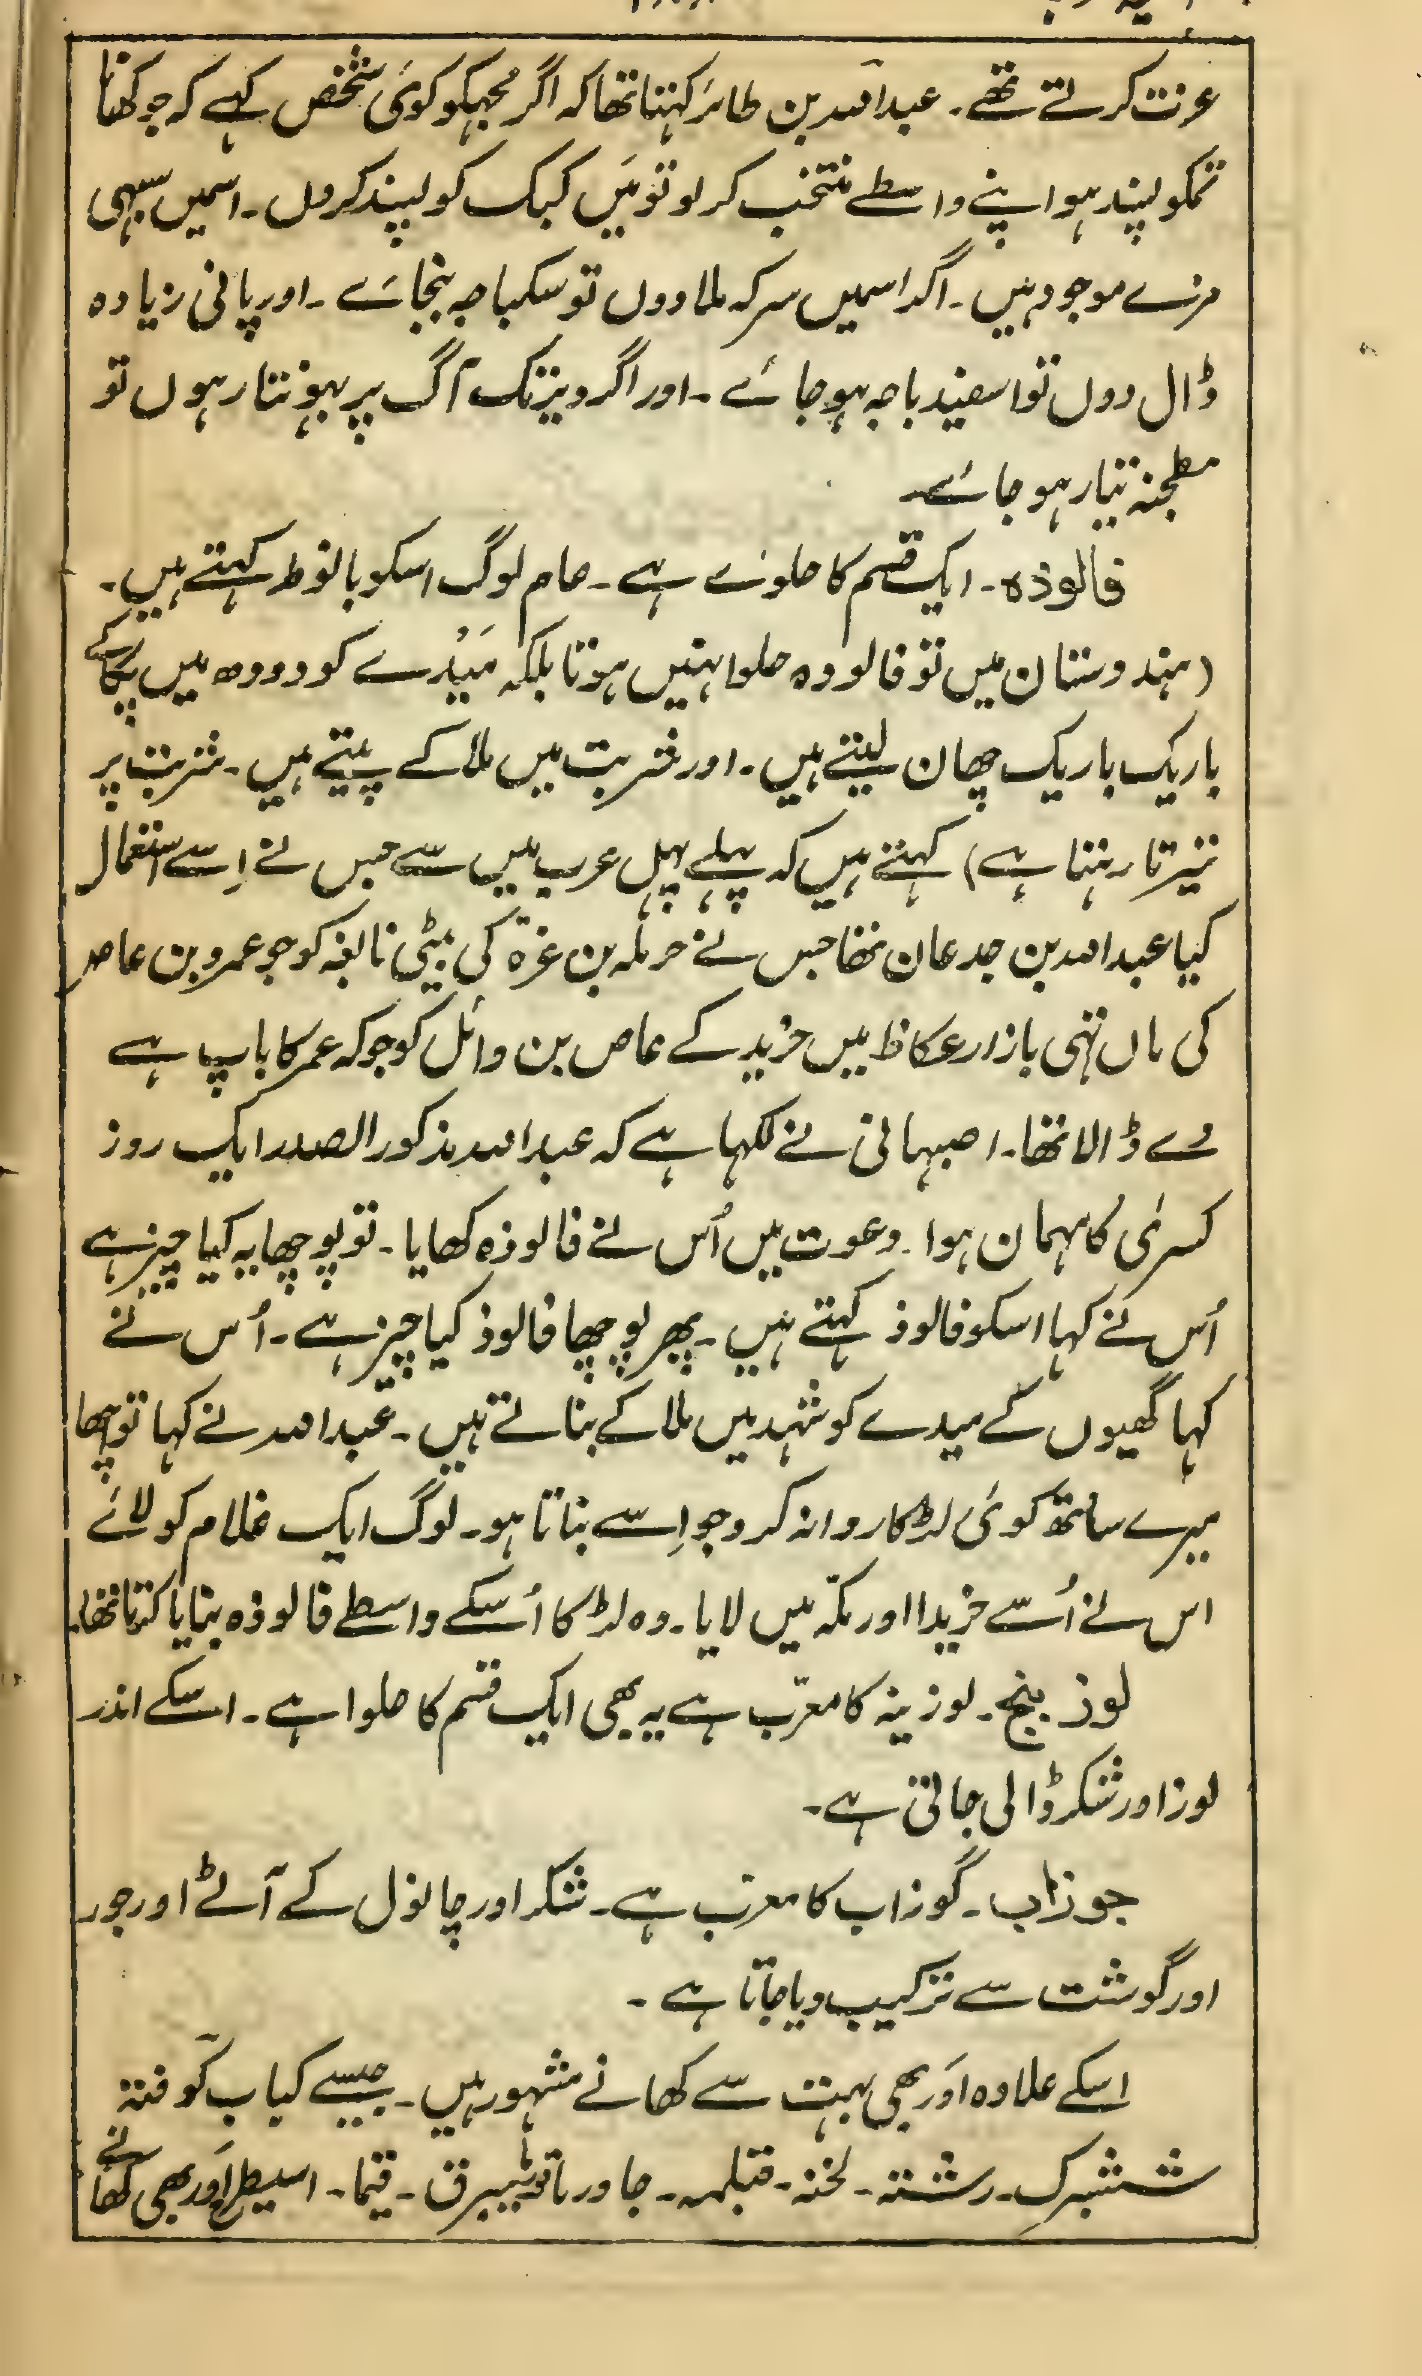 عزت کرتے تھے۔ عبداللہ بن طاہر کہتا تھا کہ اگر مجہکو کوئی شخص کہے کہ جو کھانا
تمکو پسند ہو اپنے واسطے منتخب کر لو تو میں کبک کو پسند کروں۔ اسمیں سبہی
مزے موجود ہیں۔ اگر اسمیں سرکہ ملا دوں تو سکباجہ بنجائے۔ اور پانی زیادہ
ڈال دوں تو اسفیدباجہ ہو جائے۔ اور اگر دیر تک آگ پر بہونتا رہوں تو
مطجنہ تیار ہو جائے۔
فالوذہ۔ ایک قسم کا حلوےٰ ہے۔ عام لوگ اسکو بالوظ کہتے ہیں۔
(ہندوستان میں تو فالودہ حلوا نہیں ہوتا بلکہ مَیدے کو دودھ میں پکا کے
باریک باریک چھان لیتے ہیں۔ اور شربت میں ملا کے پیتے ہیں۔ شربت پر
تیرتا رہتا ہے) کہتے ہیں کہ پہلے پہل عرب میں سے جس نے اِسے استعمال
کیا عبداللہ بن جدعان تھا جس نے حرملہ بن غزۃ کی بیٹی نابغہ کو جو عمرو بن عاص
کی ماں تہی بازار عکاظ میں خرید کے عاص بن وائل کو جو کہ عمر کا باپ ہے
دے ڈالا تھا۔ اصبہانی نے لکہا ہے کہ عبداللہ مذکور الصدر ایک روز
کسریٰ کا مہمان ہوا۔ دعوت میں اُس نے فالوذہ کھایا۔ تو پوچھا یہ کیا چیز ہے
اُس نے کہا اسکو فالوذ کہتے ہیں۔ پھر پوچھا فالوذ کیا چیز ہے۔ اُس نے
کہا گھیوں کے میدے کو شہد میں ملا کے بناتے ہیں۔ عبداللہ نے کہا تو اچھا
میرے ساتھ کوئی لڑکا روانہ کرو جو اِسے بناتا ہو۔ لوگ ایک غلام کو لائے
اس نے اُسے خریدا اور مکہّ میں لایا۔ وہ لڑکا اُسکے واسطے فالوذہ بنایا کرتا تھا۔
لوذینج۔ لوزینہ کا معرّب ہے یہ بھی ایک قسم کا حلوا ہے۔ اسکے اندر
لوز اور شکر ڈالی جاتی ہے۔
جوزاب۔ گوزاب کا معرّب ہے۔ شکر اور چانول کے آٹے اور جوز
اور گوشت سے ترکیب دیا جاتا ہے۔
اِسکے علاوہ اَور بھی بہت سے کھانے مشہور ہیں۔ جیسے کباب کوفتہ
ششبرک۔ رشتہ۔ لخنہ۔ قتبلمہ۔ قیما۔ اسیطرح اَور بھی کھانے